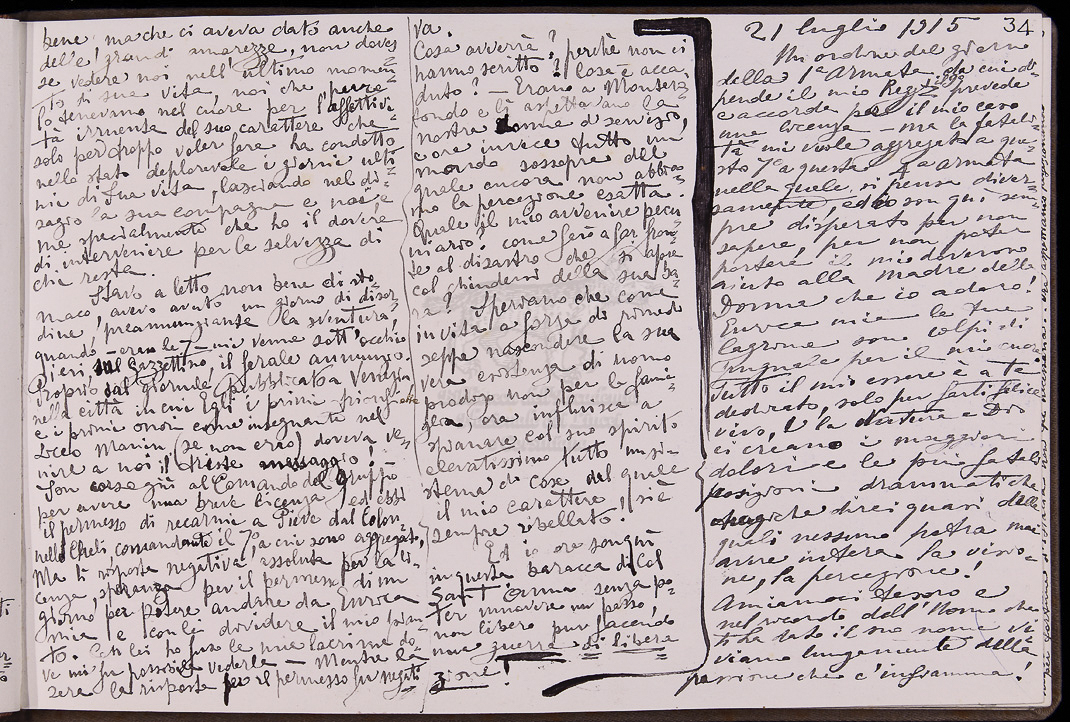 bene, ma che ci aveva dato anche
delle grandi amarezze, non doves
se vedere noi nell'ultimo momen=
to di sua vita, noi che pure
lo tenevamo nel cuore per l'affettivi
tà irruenta del suo carattere che
solo per troppo voler fare ha condotto
nello stato deplorevole i giorni ulti
mi di sua vita, lasciando nel di=
sagio la sua compagna e noi e
me specialmente che ho il dovere
di intervenire per la salvezza di
chi resta.
Stavo a letto non bene di sto
maco, avevo avuto un giorno di disor
dine, preannunziante la sventura,
quando - erano le 7 - mi venne sott'occhio
Ieri sul Gazzettino, il ferale annunzio.
Proprio dal giornale pubblicato a Venezia
nella città in cui Egli i primi
e i primi onori come insegnante nel
Liceo Manin (se non erro) doveva ve,
nire a noi il triste messaggio!
Son corso giù al Comando del Gruppo
per avere una breve licenza ed ebbi
il permesso di recarmi a Pieve dal Colon,
nello Cheli, comandante il 7° a cui sono aggregato,
Ma ti risposta negativa assoluta per la li=
cenza, speranza per il permesso di un
giorno per potere andare da Enrica
mia e con lei dividere il mio
to. Con lei ho fuso le mie lacrime do=
ve mi fu possibile vederla - Mentre la
sera la risposta per il permesso fu negati
va.
Cosa avverrà? perchè non ci
hanno scritto? Cosa è acca=
duto? - Erano a Montero=
tondo e lì aspettavano la
nostra donna di servizio,
e ora invece tutto un
mondo sossopra del
quale ancora non abbia=
mo la percezione esatta.
Quale il mio avvenire pecu
niario? come farò a far fron=
te al disastro che si apre
col chiudersi della sua ba
ra? Speriamo che come
in vita a forza di rimedi
seppe nascondere la sua
vera esistenza di uomo
prodigo non per la fami=
glia, ora influisca a
spianare col suo spirito
elevatissimo tutto un si=
stema di cose del quale
il mio carattere si è
sempre ribellato.
Ed io ora son qui
in questa baracca di Col
Sant'Anna senza po=
ter muovere un passo,
non libero pur facendo
una guerra di libera
zione!
21 luglio 1915 34
Un ordine del giorno
della 1ª Armata, da cui di=
pende il mio Regg.to prevede
e accorda per il mio caso
una licenza - ma la fatali
tà mi vuole aggregato a que=
sto 7° a questa 4ª armata
nella quale si pensa diver=
samente, ed io son qui sem=
pre disperato per non
sapere, per non poter
portare il mio doveroso
aiuto alla madre della
Donna che io adoro!
Enrica mia le tue
lagrime sono colpi di
pugnale per il mio cuore.
Tutto il mio essere è a te
dedicato, solo per farti felice
vivo, e la Natura e Dio
ci creano i maggiori
dolori e le più fatali
posizioni drammatiche
tragiche direi quasi delle
quali nessuno potrà mai
avere intera la visio=
ne, la percezione!
Amiamoci tesoro e
nel ricordo dell'Uomo che
ti ha dato il suo nome vi=
viamo lungamente della
passione che c'infiamma!